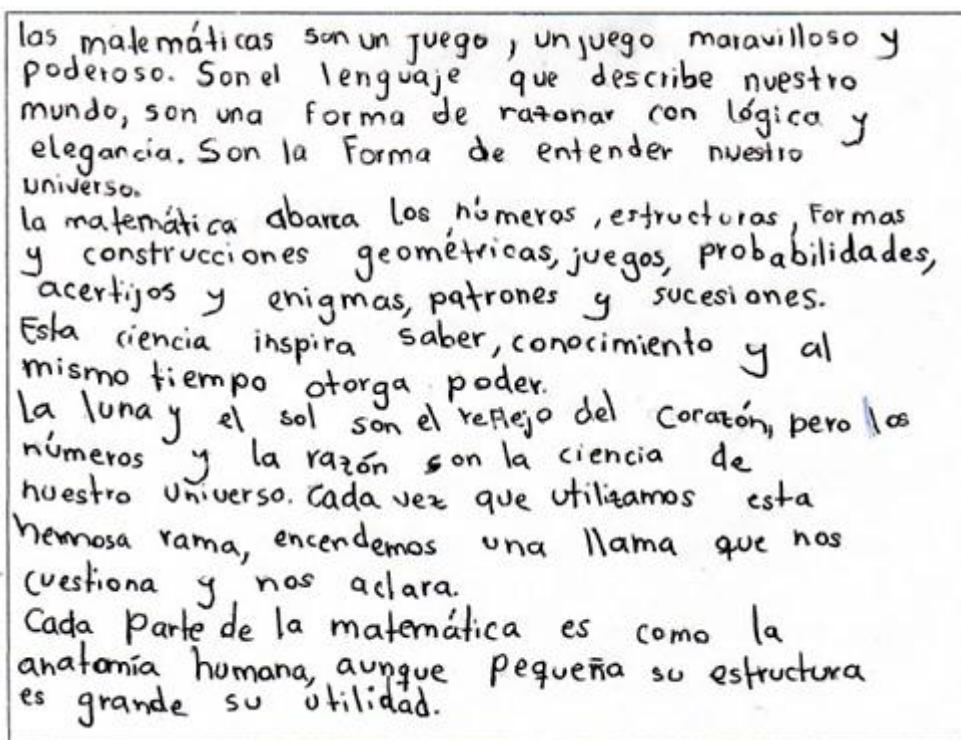 las matemáticas son un juego, un juego maravilloso y
poderoso. Son el lenguaje que describe nuestro
mundo, son una forma de razonar con lógica y
elegancia. Son la Forma de entender nuestro
universo.
la matemática abarca los números, estructuras, Formas
y construcciones geométricas, juegos, probabilidades,
acertijos y enigmas, patrones y sucesiones.
Esta ciencia inspira saber, conocimiento y al
mismo tiempo otorga poder.
La luna y el sol son el reflejo del corazón, pero los
números y la razón son la ciencia de
nuestro universo. Cada vez que utilizamos esta
hermosa rama, encendemos una llama que nos
cuestiona y nos aclara.
Cada parte de la matemática es como la
anatomía humana, aunque pequeña su estructura
es grande su utilidad.